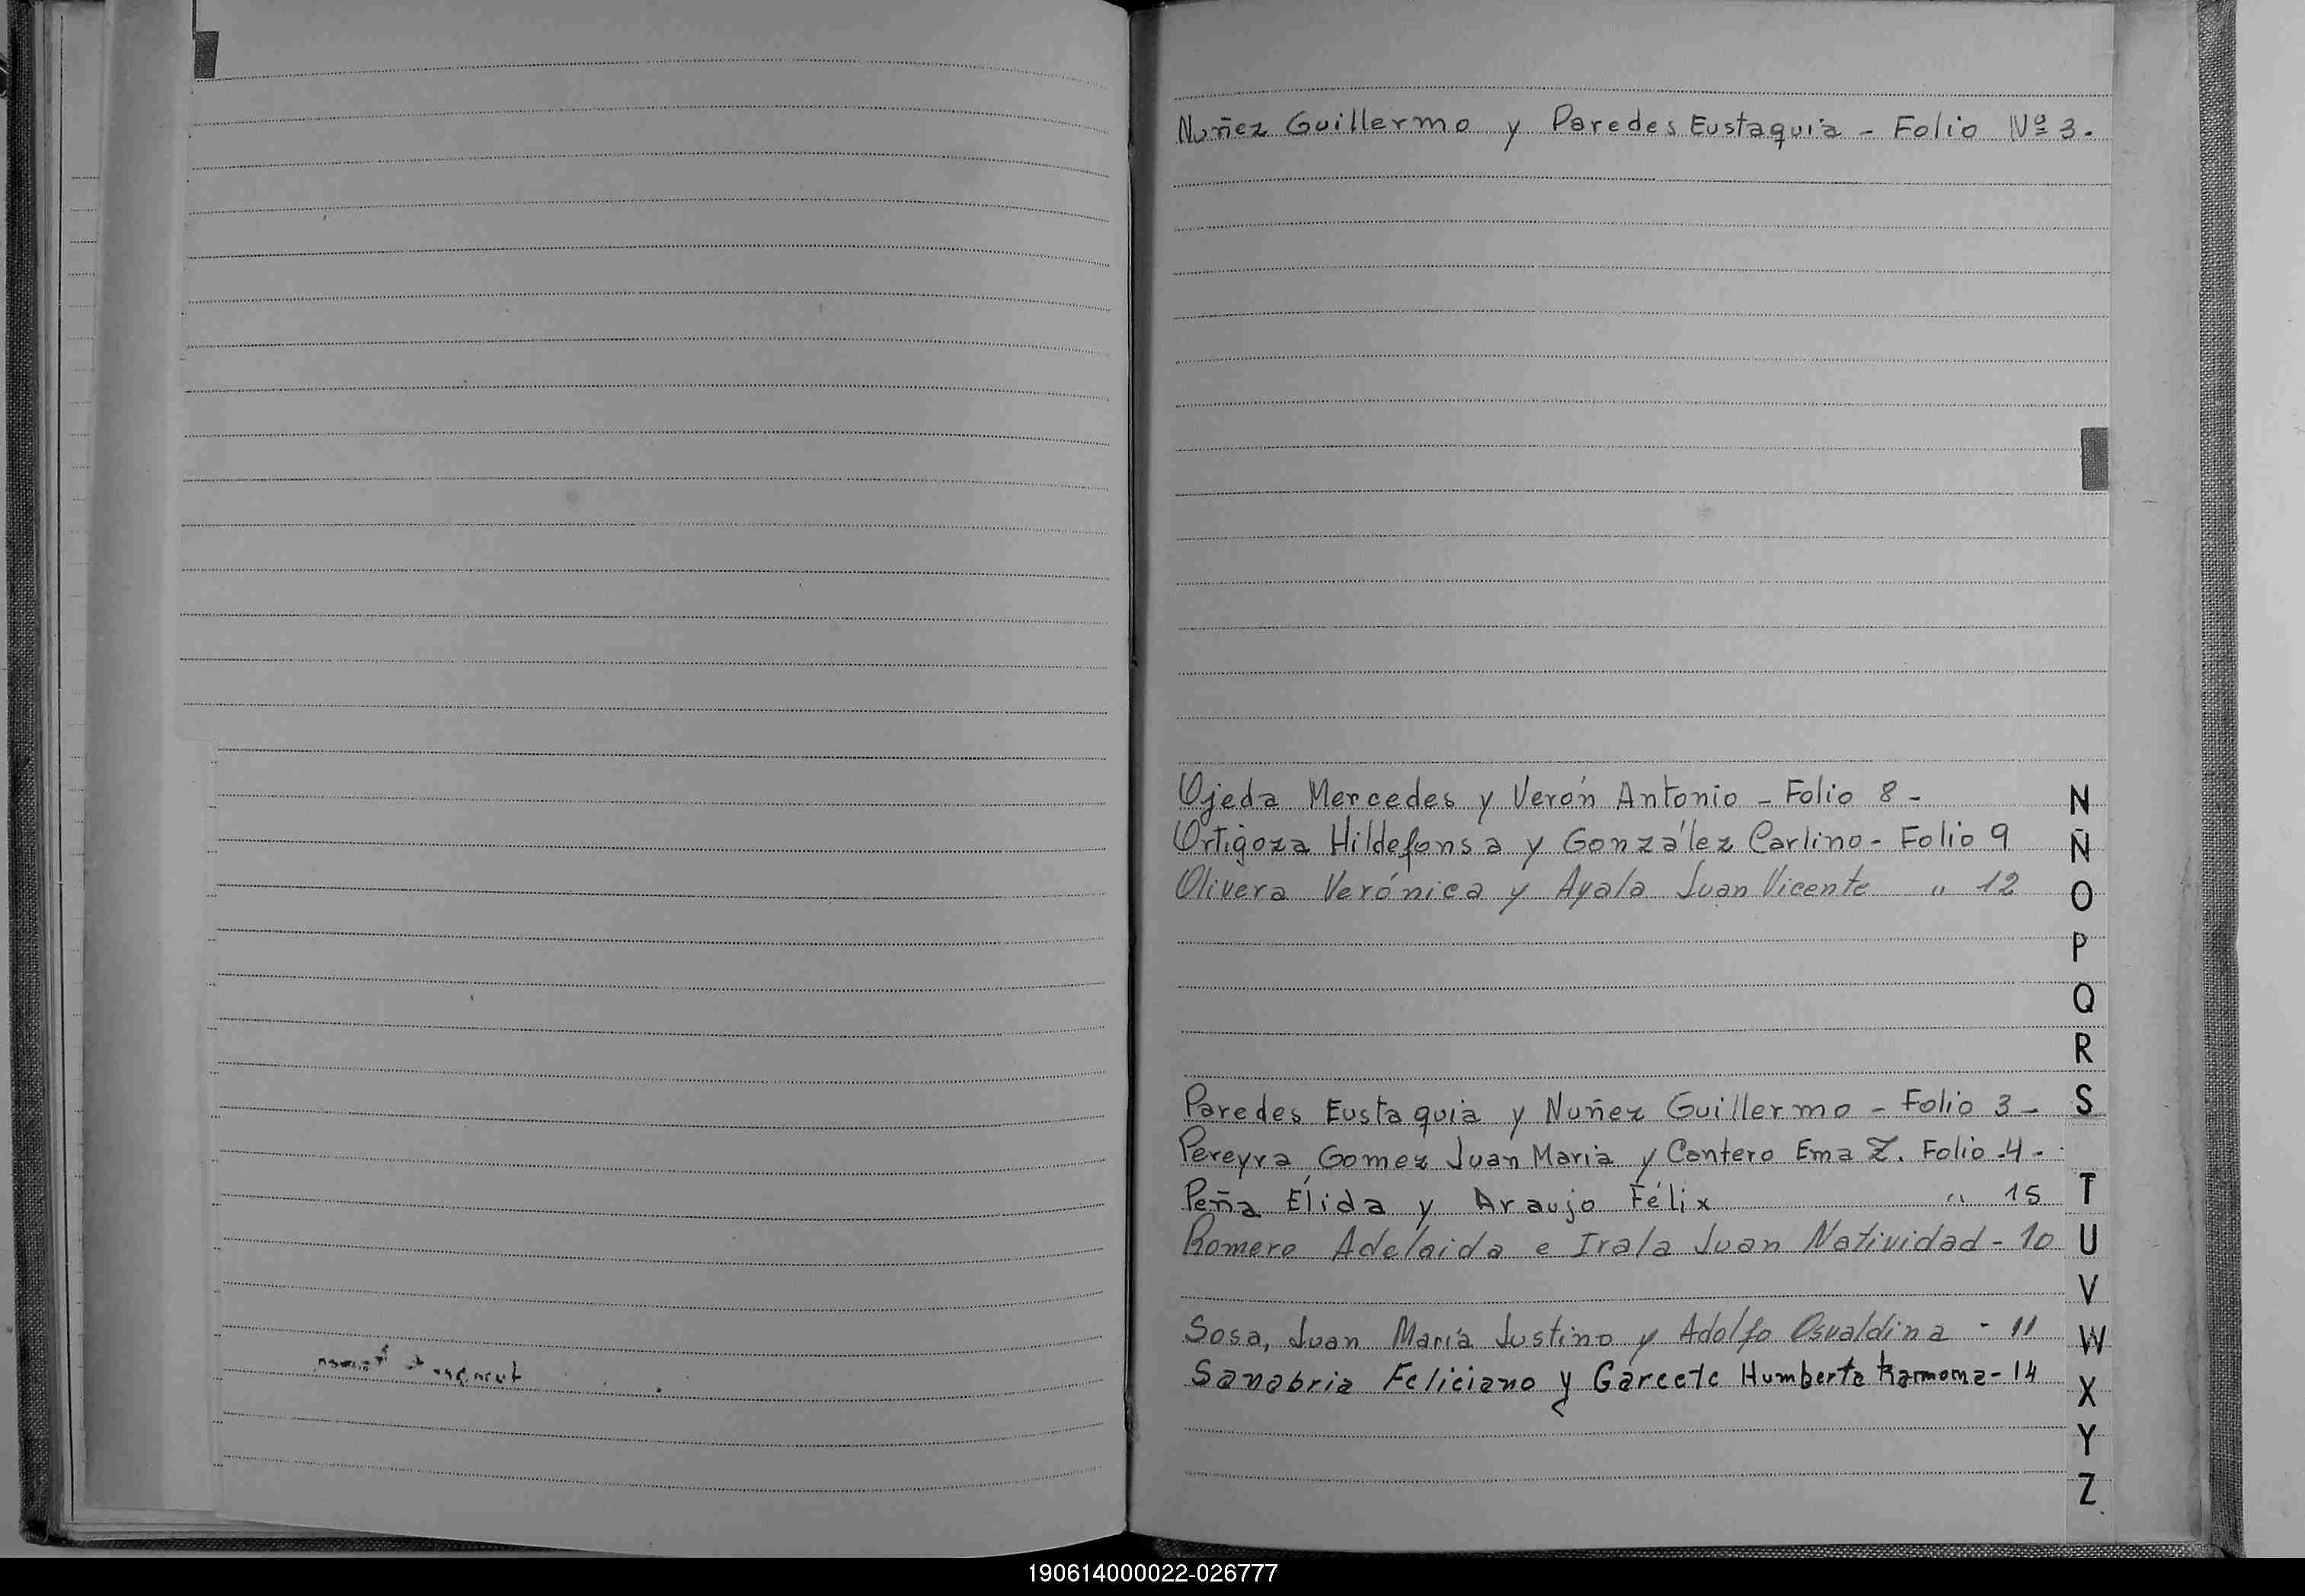 Nuñez Guillermo y Paredes Eustaquia - Folio Nº 3.
Ojeda Mercedes y Verón Antonio - Folio 8 -
Ortigoza Hildefonsa y González Carlino - Folio 9
Olivera Verónica y Ayala Juan Vicente " 12
Paredes Eustaquia y Nuñez Guillermo - Folio 3 -
Pereyra Gomez Juan Maria y Cantero Ema Z. Folio 4 -
Peña Élida y Araujo Félix " 15
Romero Adelaida e Irala Juan Natividad - 10
Sosa, Juan María Justino y Adolfo Osvaldina - 11
Sanabria Feliciano y Garcete Humberta Ramona - 14
N
Ñ
O
P
Q
R
S
T
U
V
W
X
Y
Z
190614000022-026777